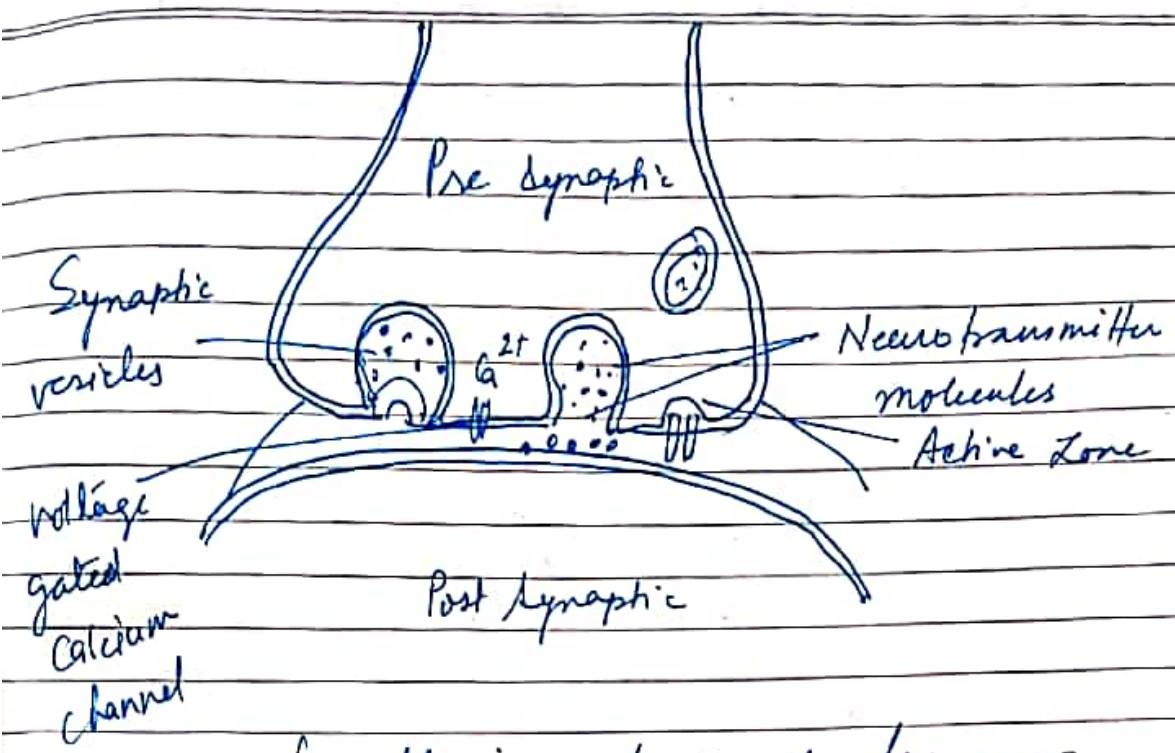 Pre Synaptic
Synaptic
vesicles
Ca 2+
Neurotransmitter
molecules
Active Zone
voltage
gated
Calcium
channel
Post Synaptic